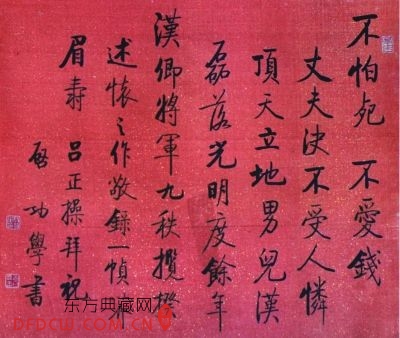 不怕死 不愛錢
丈夫决不受人憐
頂天立地男兒漢
磊落光明度餘年
漢卿將軍九秩攬揆
述懷之作敬錄一幀以介
眉壽 呂正操拜祝
啟功學書
东方典藏网
DFDCW.COM.CN